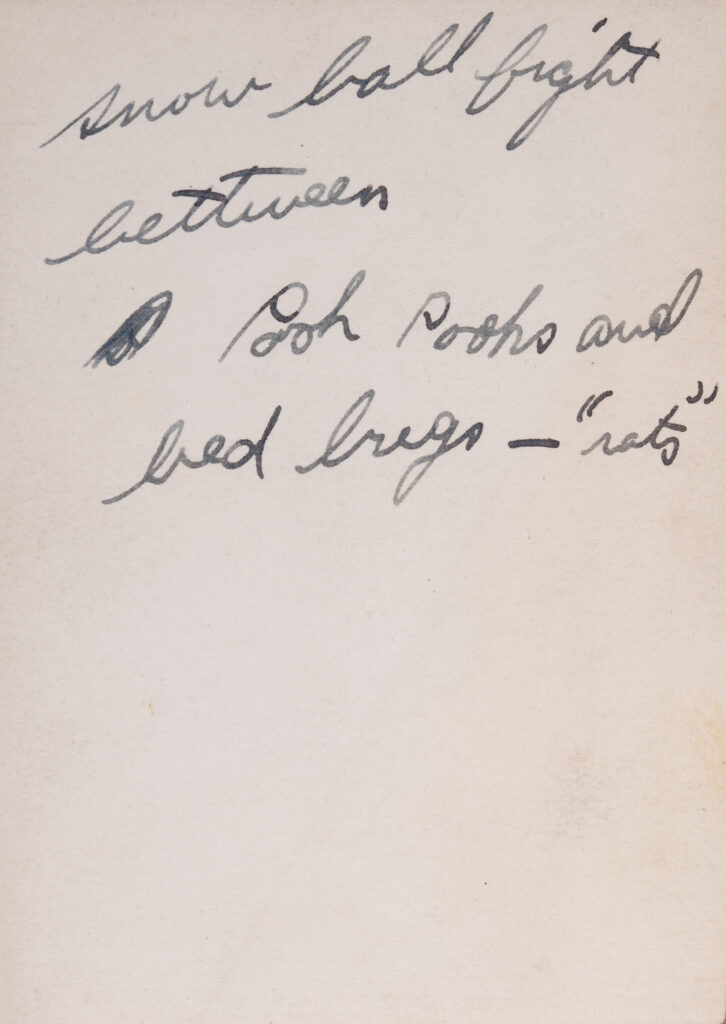 snow ball fight
between
Pooh Poohs and
bed bugs — "rats"